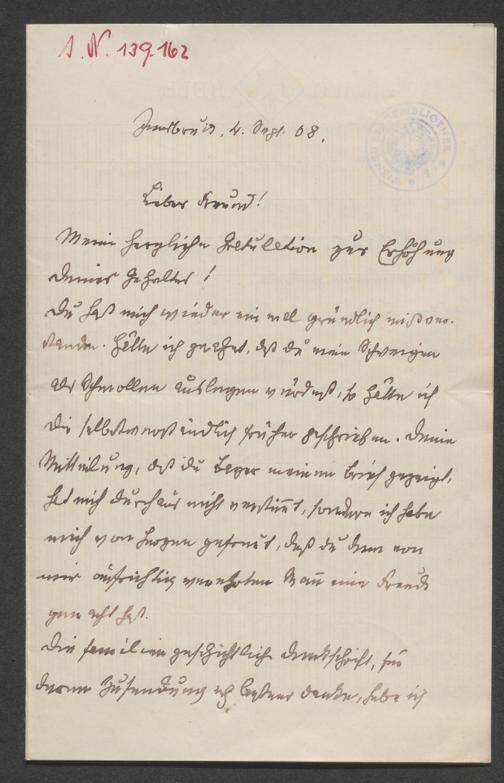 J.N. 139.162
WIENER STADTBIBLIOTHEK
Innsbruck, 4. Sept. 08.
Lieber Freund!
Meine herzliche Gratulation zur Erhöhung
deines Gehaltes!
Du hast mich wieder einmal gründlich mißver-
standen. Hätte ich geahnt, daß du mein Schweigen
als Schmollen auslegen würdest, so hätte ich
dir selbstverständlich früher geschrieben. Deine
Mitteilung, daß du meinen Brief gezeigt,
hat mich durchaus nicht verstimmt, sondern ich habe
mich von Herzen gefreut, daß du dem von
mir aufrichtig verehrten Mann eine Freude
gemacht hast.
Die familiengeschichtliche Denkschrift, für
deren Zusendung ich bestens danke, habe ich